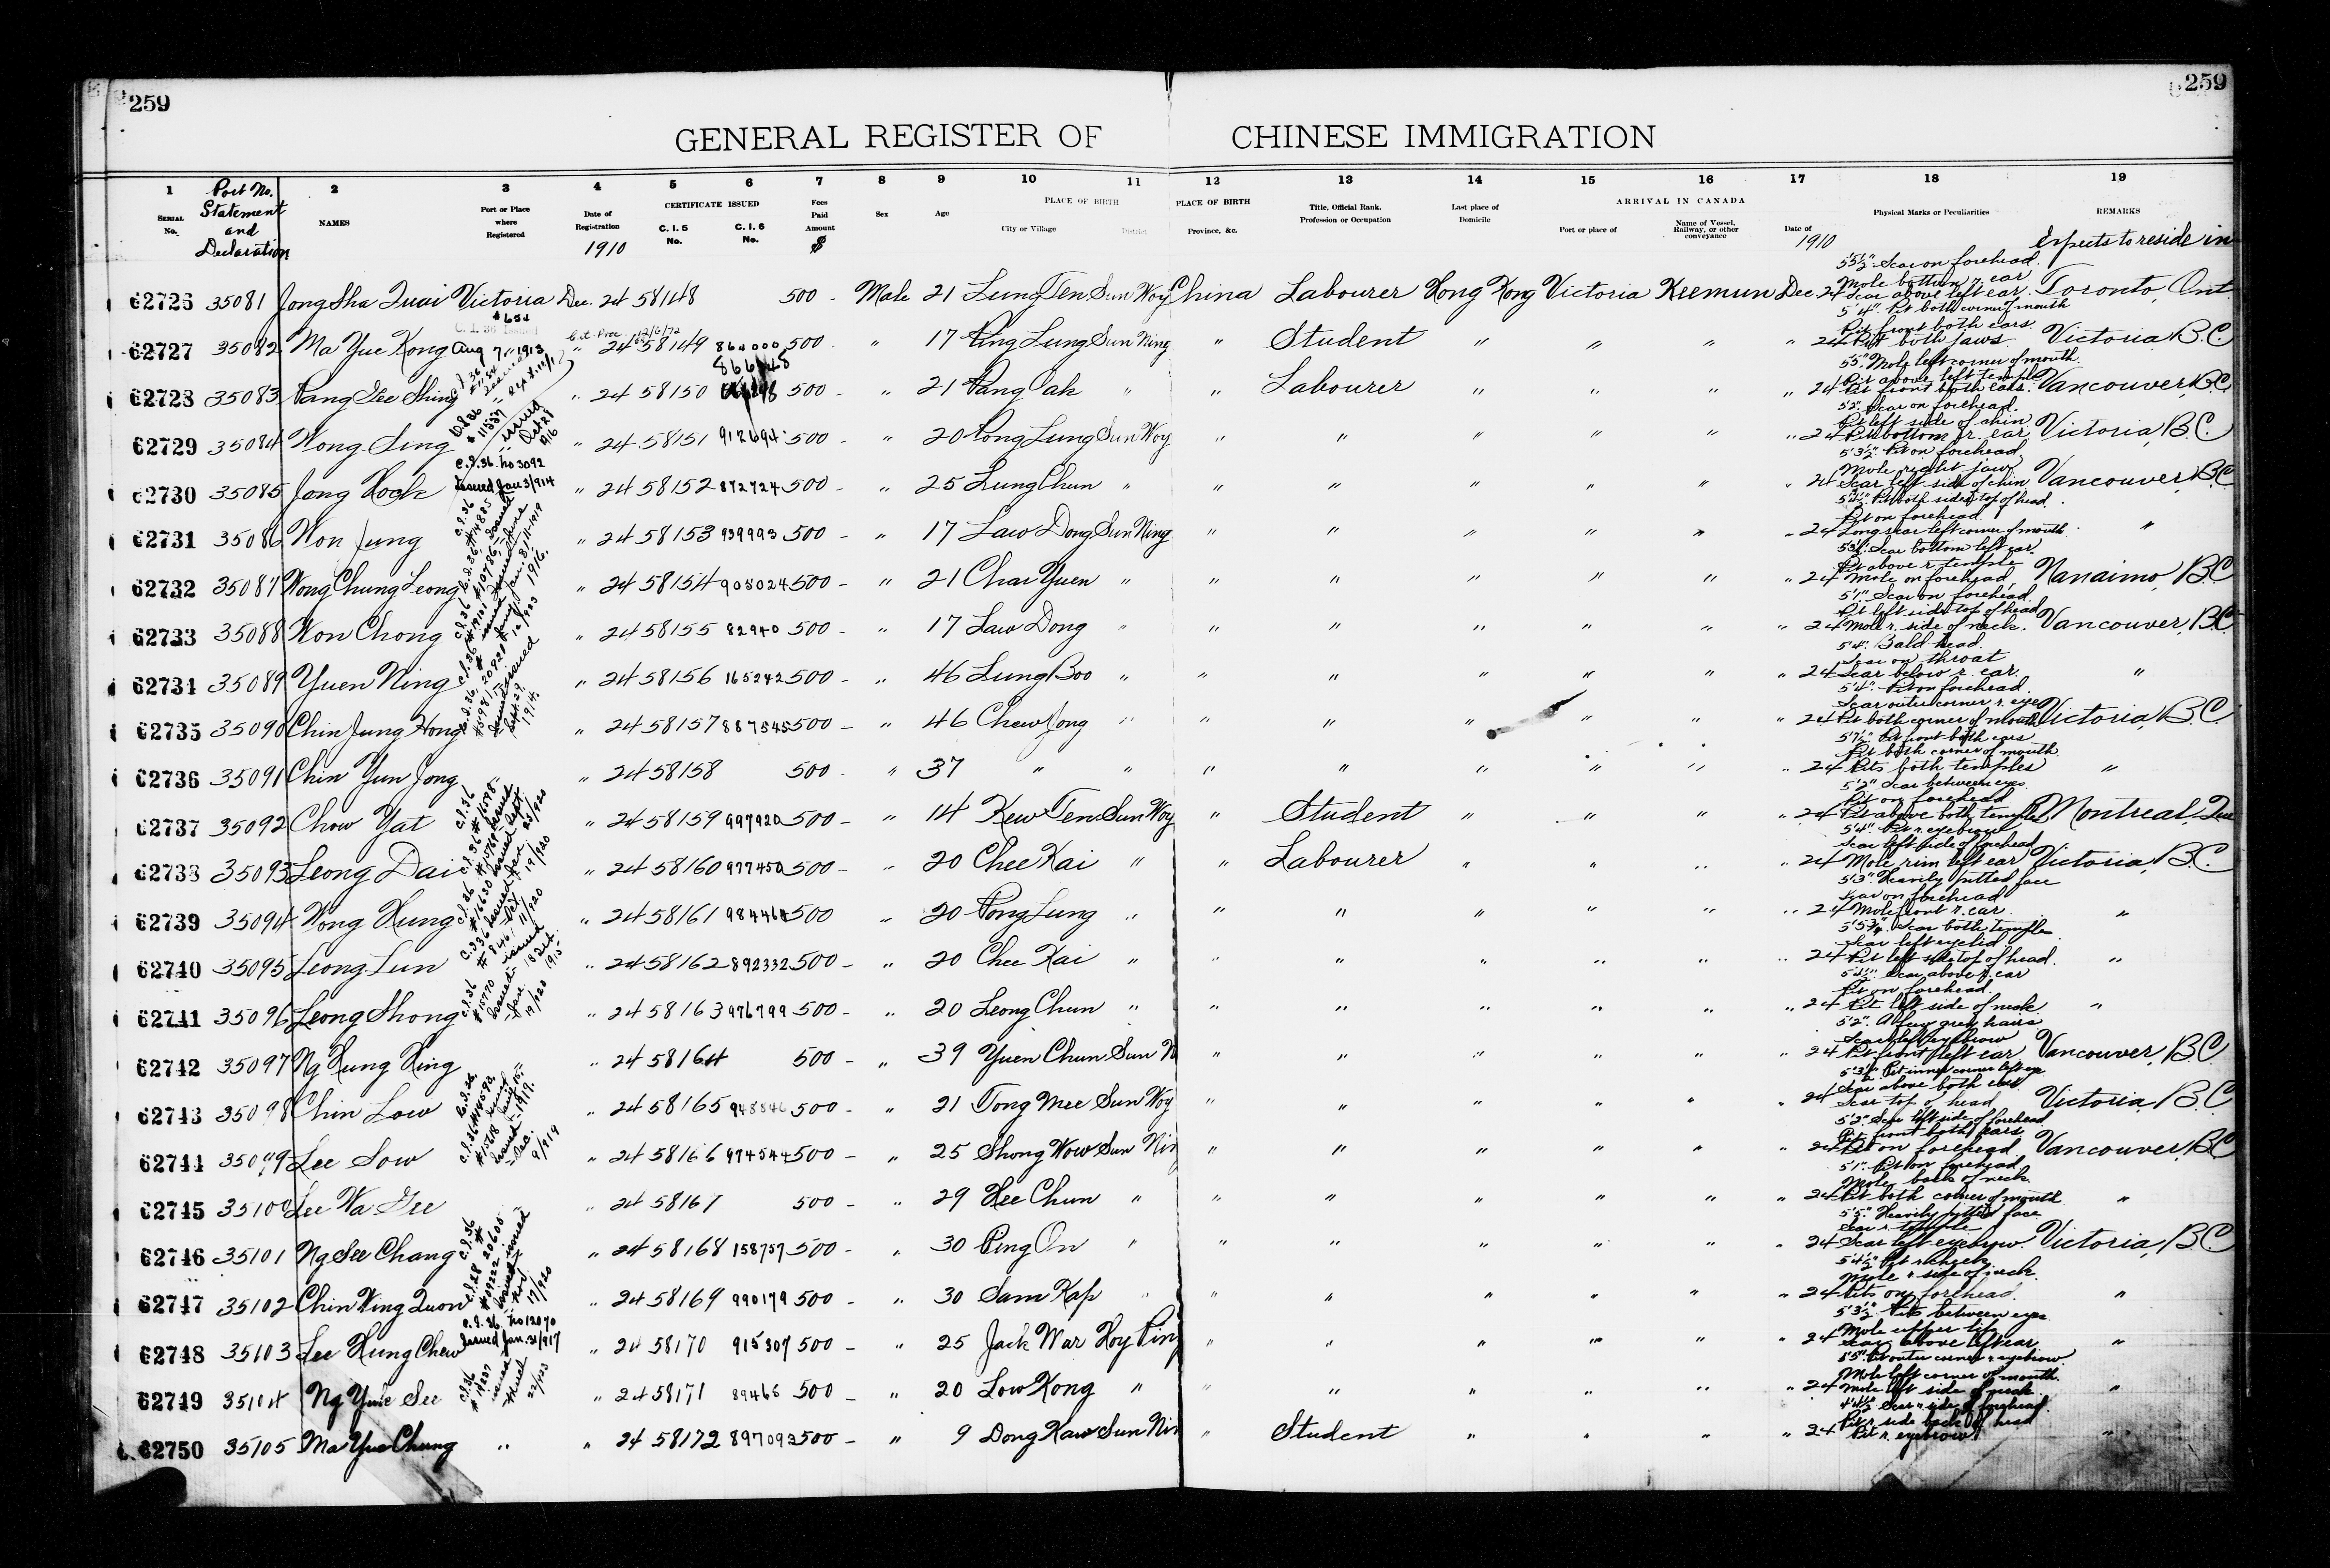 259 259
GENERAL REGISTER OF CHINESE IMMIGRATION
1 Port No. Statement and Declaration 2 3 4 5 6 7 8 9 10 11 12 13 14 15 16 17 18 19
SERIAL No. NAMES Port or Place where Registered Date of Registration CERTIFICATE ISSUED C. I. 5 No. C. I. 6 No. Fees Paid Amount $ Sex Age PLACE OF BIRTH City or Village District PLACE OF BIRTH Province, &c. Title, Official Rank, Profession or Occupation Last place of Domicile ARRIVAL IN CANADA Port or place of Name of Vessel, Railway, or other conveyance Date of Physical Marks or Peculiarities REMARKS
1910 1910 Expects to reside in
62726 35081 Jong Sha Quai Victoria Dec. 24 58148 500 - Male 21 Lung Ten Sun Woy China Labourer Hong Kong Victoria Keemun Dec 24 5'5½" Scar on forehead. Mole bottom r. ear Scar above left ear. Toronto, Ont
62727 35082 Ma Yue Kong Aug 7 1913 " 24 58149 500 - " 17 Ping Lung Sun Ning " Student " " " " 24 5'4" Pit both corner of mouth Pit front both ears. Pit both jaws. Victoria B.C.
62728 35083 Pang See Shing " 24 58150 866748 500 - " 21 Pang Pak " " Labourer " " " " 24 5'5" Mole left corner of mouth. Pit above left temple Pit front both ears. Vancouver, B.C.
62729 35084 Wong Sing C.I.36 # 11537 issued Oct 28 1916 " 24 58151 912694 500 - " 20 Pong Lung Sun Woy " " " " " " 24 5'2" Scar on forehead. Pit left side of chin Pit bottom r. ear Victoria, B.C.
62730 35085 Jong Hock C.I.36. No 3092 Issued Jan 3/914 " 24 58152 872724 500 - " 25 Lung Chun " " " " " " " 24 5'3½" Pit on forehead Mole right jaw Scar left side of chin Vancouver, B.C.
62731 35086 Won Jung " 24 58153 939993 500 - " 17 Law Dong Sun Ning " " " " " " 24 Pit both sides top of head. Pit on forehead Long scar left corner of mouth "
62732 35087 Wong Chung Leong " 24 58154 905024 500 - " 21 Chai Yuen " " " " " " " 24 Scar bottom left ear. Pit above r. temple Mole on forehead. Nanaimo, B.C.
62733 35088 Won Chong " 24 58155 82940 500 - " 17 Law Dong " " " " " " " 24 5'1" Scar on forehead. Pit left side top of head Mole r. side of neck. Vancouver, B.C.
62734 35089 Yuen Ning " 24 58156 165242 500 - " 46 Lung Boo " " " " " " " 24 5'4" Bald head. Scar on throat Scar below r. ear "
62735 35090 Chin Jung Hong " 24 58157 887545 500 - " 46 Chew Jong " " " " " " " 24 5'4" Pit on forehead. Scar outer corner r. eye Pit both corner of mouth Victoria, B.C.
62736 35091 Chin Yun Jong " " 24 58158 500 - " 37 " " " " " " " " 24 5'7½" Pit front both ears Pit both corner of mouth Pits both temples "
62737 35092 Chow Yat " 24 58159 997920 500 - " 14 Kew Ten Sun Woy " Student " " " " 24 5'2" Scar between eyes Pit on forehead Pit above both temples Montreal, Que
62738 35093 Leong Dai " 24 58160 977450 500 - " 20 Chee Kai " " Labourer " " " " 24 5'4" Pit r. eyebrow Scar left side of forehead Mole rim left ear Victoria, B.C.
62739 35094 Wong Hung " 24 58161 984464 500 " 20 Pong Lung " " " " " " " 24 5'3" Heavily pitted face Scar on forehead Mole front r. ear "
62740 35095 Leong Lun " 24 58162 892332 500 - " 20 Chee Kai " " " " " " " 24 5'5¾" Scar both temples Scar left eyelid Pit left side top of head. "
62741 35096 Leong Shong " 24 58163 976799 500 - " 20 Leong Chun " " " " " " " 24 Scar above r. ear Pit on forehead. Pit left side of neck "
62742 35097 Ng Hung Hing " " 24 58164 500 - " 39 Yuen Chun Sun N " " " " " " 24 5'2" A few grey hairs Scar left eyebrow Pit front left ear Vancouver, B.C.
62743 35098 Chin Low " 24 58165 948846 500 - " 21 Tong Mee Sun Woy " " " " " " 24 5'3½" Pit inner corner left eye Scar above both ears Scar top of head Victoria, B.C.
62744 35099 Lee Sow " 24 58166 974544 500 - " 25 Shong Wow Sun Nin " " " " " " 24 5'2" Scar left side of forehead Pit front both ears Pit on forehead Vancouver, B.C.
62745 35100 Lee Wa Gee " " 24 58167 500 - " 29 Hee Chun " " " " " " " 24 5'1" Pit on forehead Mole back of neck Pit both corner of mouth "
62746 35101 Ng See Chang " 24 58168 158757 500 - " 30 Ping On " " " " " " " 24 5'5" Heavily pitted face Scar r. temple Scar left eyebrow. Victoria, B.C.
62747 35102 Chin Wing Quon " 24 58169 990179 500 - " 30 Sam Kap " " " " " " " 24 5'4½" Pit r. cheek Mole r. side of neck. Pits on forehead. "
62748 35103 Lee Hung Chew C.I.36. No 12070 Issued Jan. 31/917 " 24 58170 915307 500 - " 25 Jack War Hoy Ping " " " " " " 24 5'3½" Pits between eyes Mole upper lip Scar above left ear "
62749 35104 Ng Yuie See " 24 58171 89466 500 - " 20 Low Kong " " " " " " " 24 5'5" Pit outer corner r. eyebrow. Mole left corner of mouth. Mole left side of neck "
62750 35105 Ma Yue Chung " " 24 58172 897093 500 - " 9 Dong Kaw Sun Nin " Student " " " " 24 4'4½" Scar r. side of forehead. Pit r. side back of head Pit r. eyebrow "